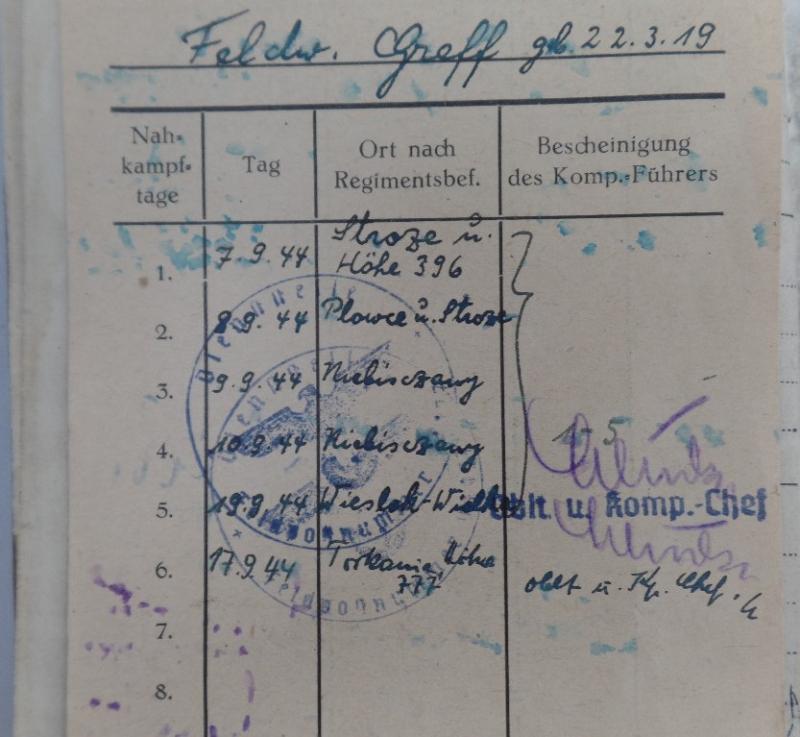 Feldw. Greff geb. 22.3.19
Nah-
kampf-
tage
Tag
Ort nach
Regimentsbef.
Bescheinigung
des Komp.-Führers
1. 7.9.44 Stroze u.
Höhe 396
2. 8.9.44 Plowce u. Stroze
3. 9.9.44 Niebisczany
4. 10.9.44 Niebisczany
1-5
5. 19.9.44 Wieslok-Wielki
Oblt. u. Komp.-Chef
6. 17.9.44 Tokarnia Höhe
777
Oblt u. Kp. Chef.
7.
8.
Dienststelle
Feldpostnummer